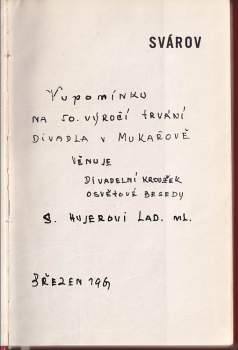 SVÁROV
Vupomínku
NA 50. VÝROČÍ TRVÁNÍ
DIVADLA V MUKAŘOVĚ
VĚNUJE
DIVADELNÍ KROUŽEK
OSVĚTOVÉ BESEDY
S. HUJEROVI LAD. ML.
BŘEZEN